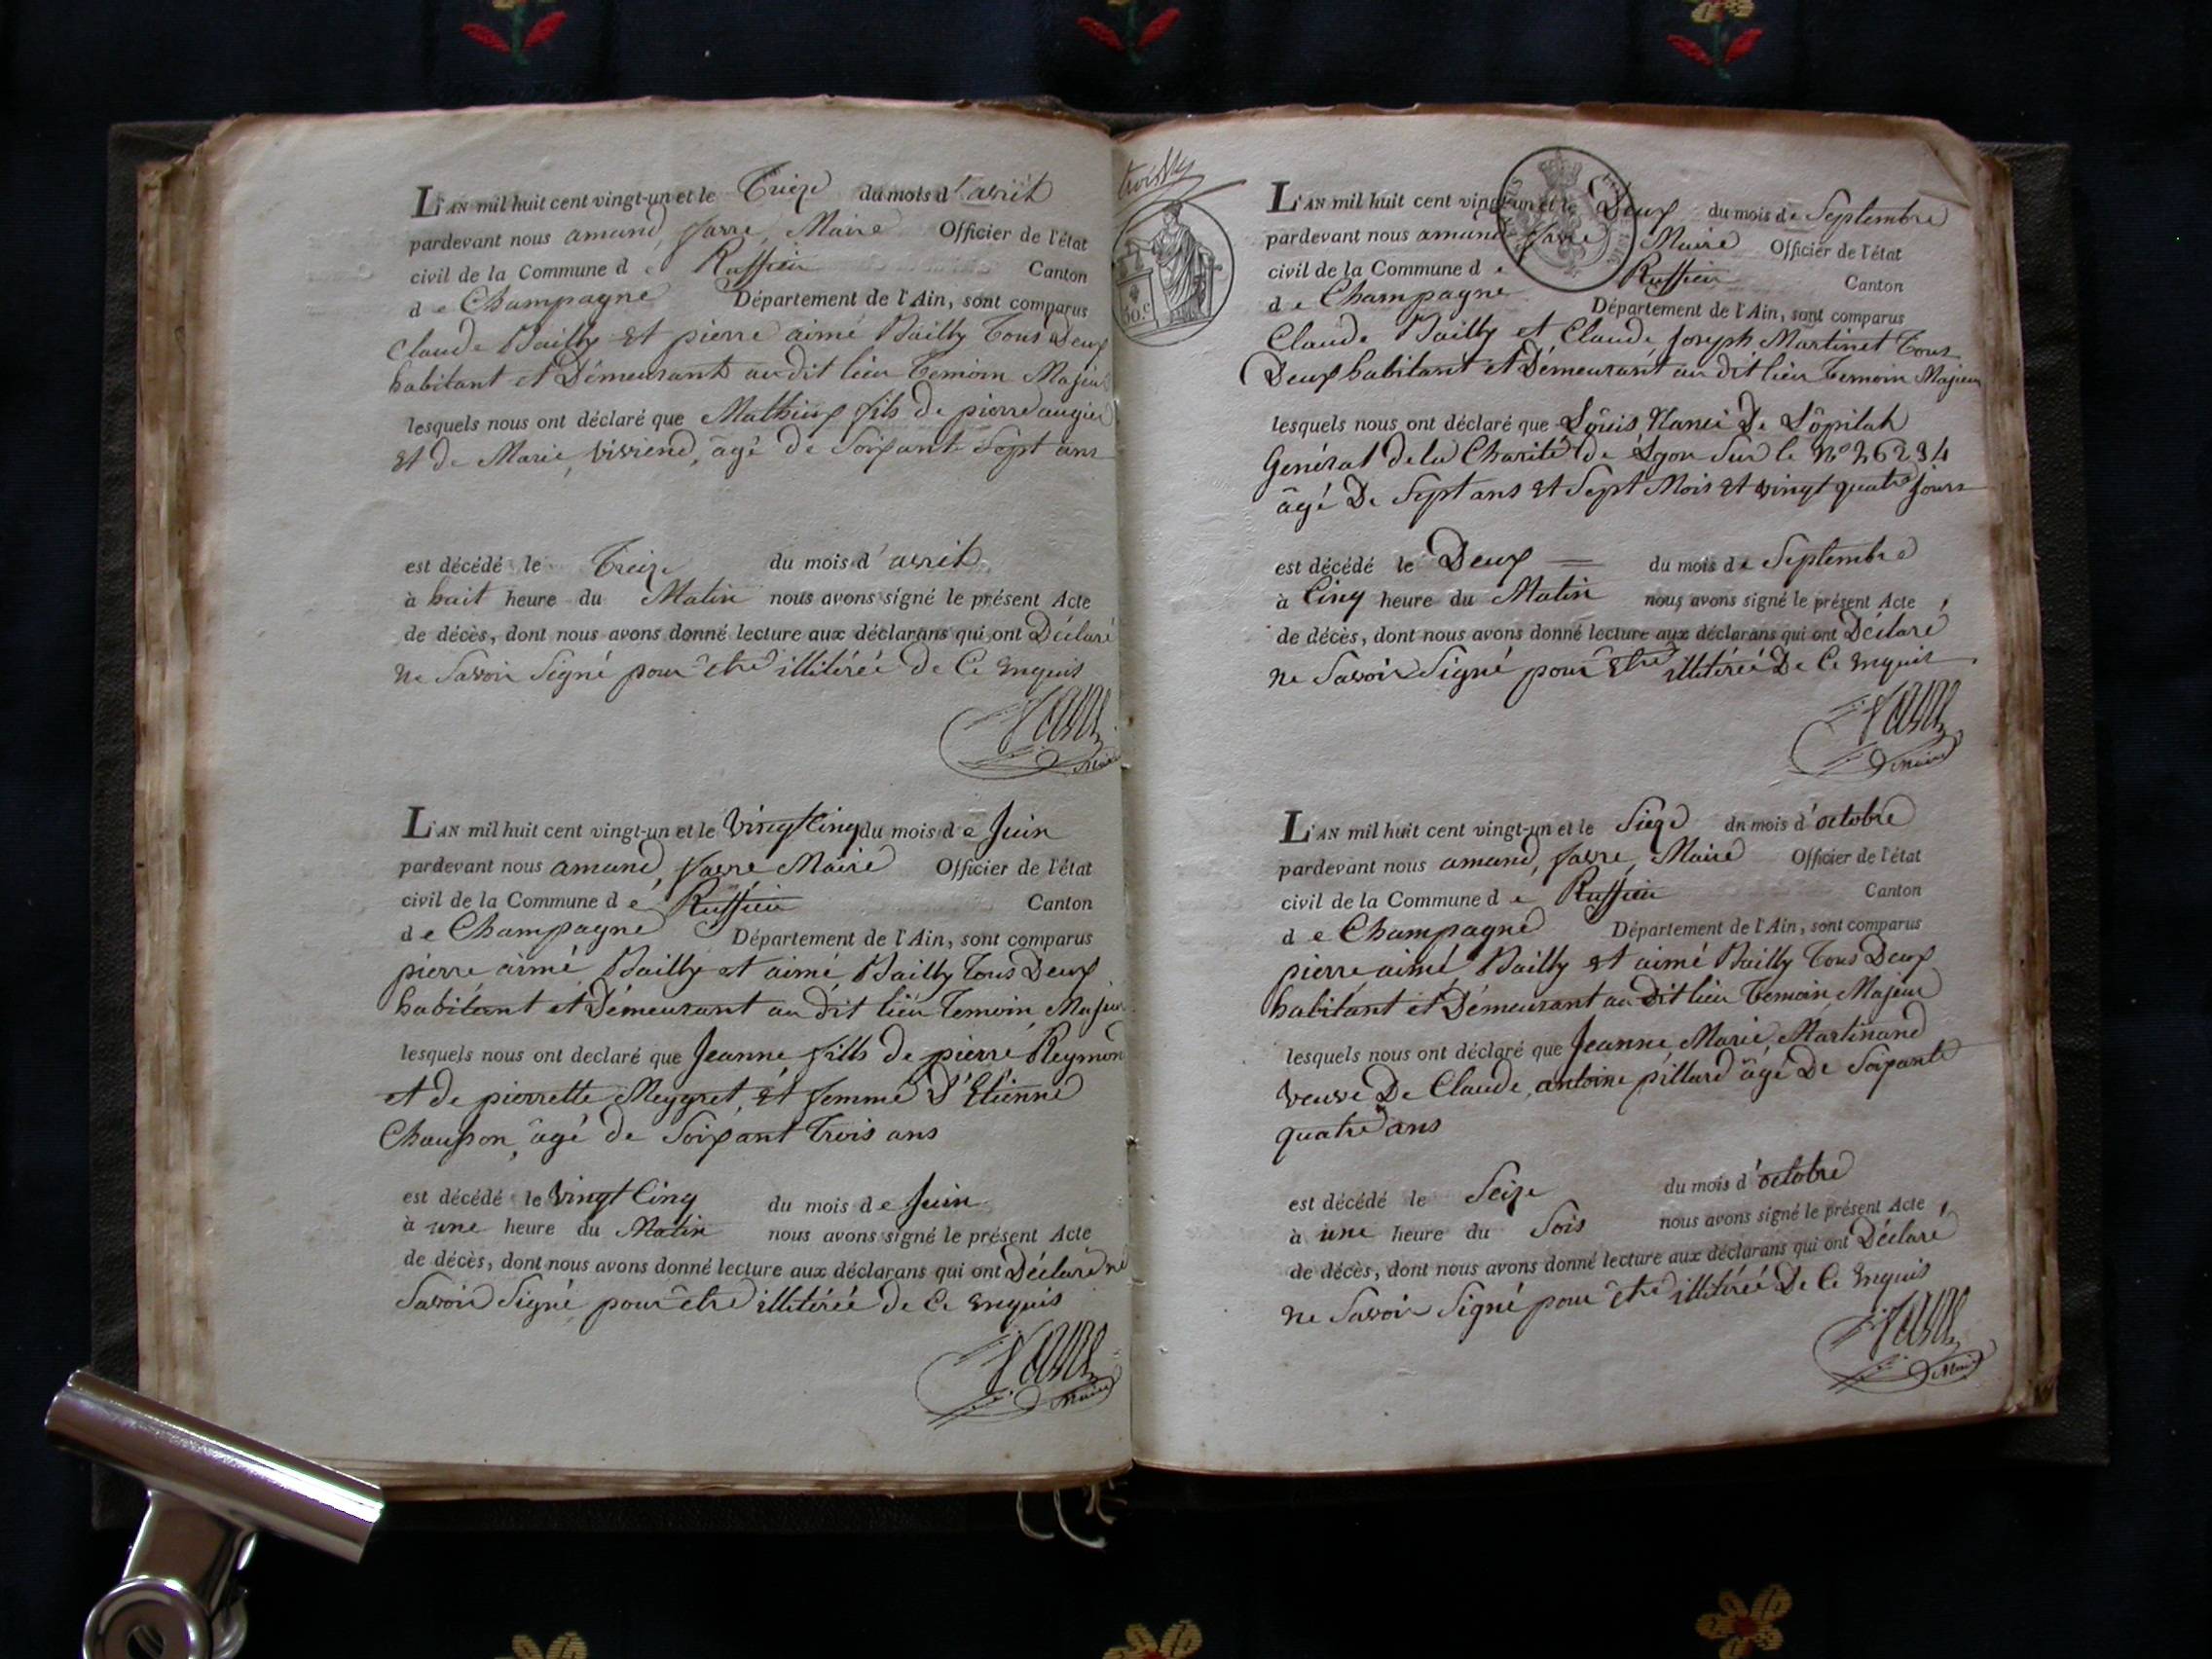 L'AN mil huit cent vingt-un et le Treize du mois d'avril
pardevant nous amand, favre, Maire Officier de l'état
civil de la Commune de Ruffieu Canton
de Champagne Département de l'Ain, sont comparus
Claude Bailly et pierre aimé Bailly Tous Deux
habitant et Démeurant audit lieu Temoin Majeur
lesquels nous ont déclaré que Mathieux fils de pierre augier
et de Marie, vivriend, âgé de Soixante Sept ans
est décédé le Treize du mois d'avril
à huit heure du Matin nous avons signé le présent Acte
de décès, dont nous avons donné lecture aux déclarans qui ont Déclaré
ne Savoir Signé pour être illitérée de Ce enquis
favre
Maire
L'AN mil huit cent vingt-un et le Vingt Cinq du mois de Juin
pardevant nous amand, favre Maire Officier de l'état
civil de la Commune de Ruffieu Canton
de Champagne Département de l'Ain, sont comparus
pierre aimé Bailly et aimé Bailly Tous Deux
habitant et Démeurant au dit lieu Temoin Majeur
lesquels nous ont declaré que Jeanne, fills de pierre Reymond
et de pierrette Meygret, et femme d'Etienne
Chaupon, âgé de Soixant Trois ans
est décédé le Vingt Cinq du mois de Juin
à une heure du Matin nous avons signé le présent Acte
de décès, dont nous avons donné lecture aux déclarans qui ont Déclaré ne
Savoir Signé pour être illitérée de Ce enquis
favre
Maire
50 c
L'AN mil huit cent vingt-un et le Deux du mois de Septembre
pardevant nous amand favre Maire Officier de l'état
civil de la Commune de Ruffieu Canton
de Champagne Département de l'Ain, sont comparus
Claude Bailly et Claude, Joseph Martinet Tous
Deux habitant et Démeurant au dit lieu Temoin Majeur
lesquels nous ont déclaré que Lôuis Nanci De Lôpitah
Genéral de la Charité de Lyon Sur le N° 26234
âgé De Sept ans et Sept Mois et vingt quatre jours
est décédé le Deux = du mois de Septembre
à Cinq heure du Matin nous avons signé le présent Acte
de décès, dont nous avons donné lecture aux déclarans qui ont Déclaré
ne Savoir Signé pour être illitérée De Ce enquis
favre
Maire
L'AN mil huit cent vingt-un et le Sieze du mois d'octobre
pardevant nous amand, favre, Maire Officier de l'état
civil de la Commune de Ruffieu Canton
de Champagne Département de l'Ain, sont comparus
pierre aimé Bailly et aimé Bailly Tous Deux
habitant et Démeurant au dit lieu Temoin Majeur
lesquels nous ont déclaré que Jeanne, Marie, Martinand
veuve De Claude, antoine pillard âgé De Soixante
quatre ans
est décédé le Seize du mois d'octobre
à une heure du Sois nous avons signé le présent Acte
de décès, dont nous avons donné lecture aux déclarans qui ont Déclaré
ne Savoir Signé pour être illitérée De Ce enquis
favre
Maire